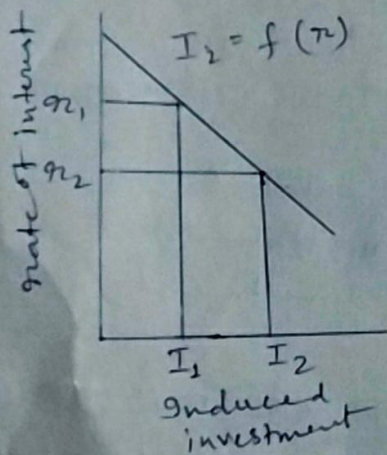 I₂ = f (r)
rate of interest
r₁
r₂
I₁ I₂
Induced
investment